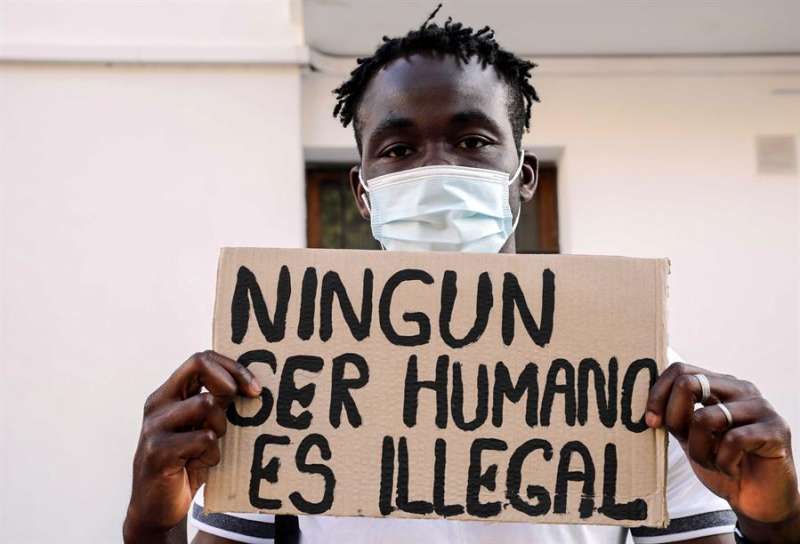 NINGUN
SER HUMANO
ES ILLEGAL